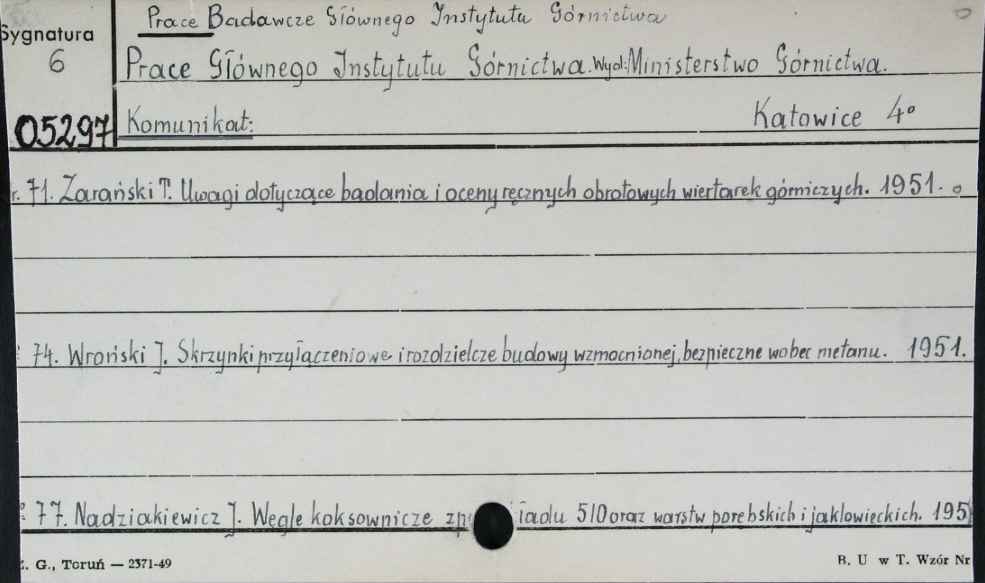 Prace Badawcze Głównego Instytutu Górnictwa
Sygnatura
6
Prace Głównego Instytutu Górnictwa. Wyd: Ministerstwo Górnictwa.
05297
Komunikat:
Katowice 4°
r. 71. Zarański T. Uwagi dotyczące badania i oceny ręcznych obrotowych wiertarek górniczych. 1951.
74. Wroński J. Skrzynki przyłączeniowe i rozdzielcze budowy wzmocnionej, bezpieczne wobec metanu. 1951.
77. Nadziakiewicz J. Węgle koksownicze 510 oraz warstw porębskich i jaklowieckich. 195
. G., Toruń — 2371-49
B. U w T. Wzór Nr